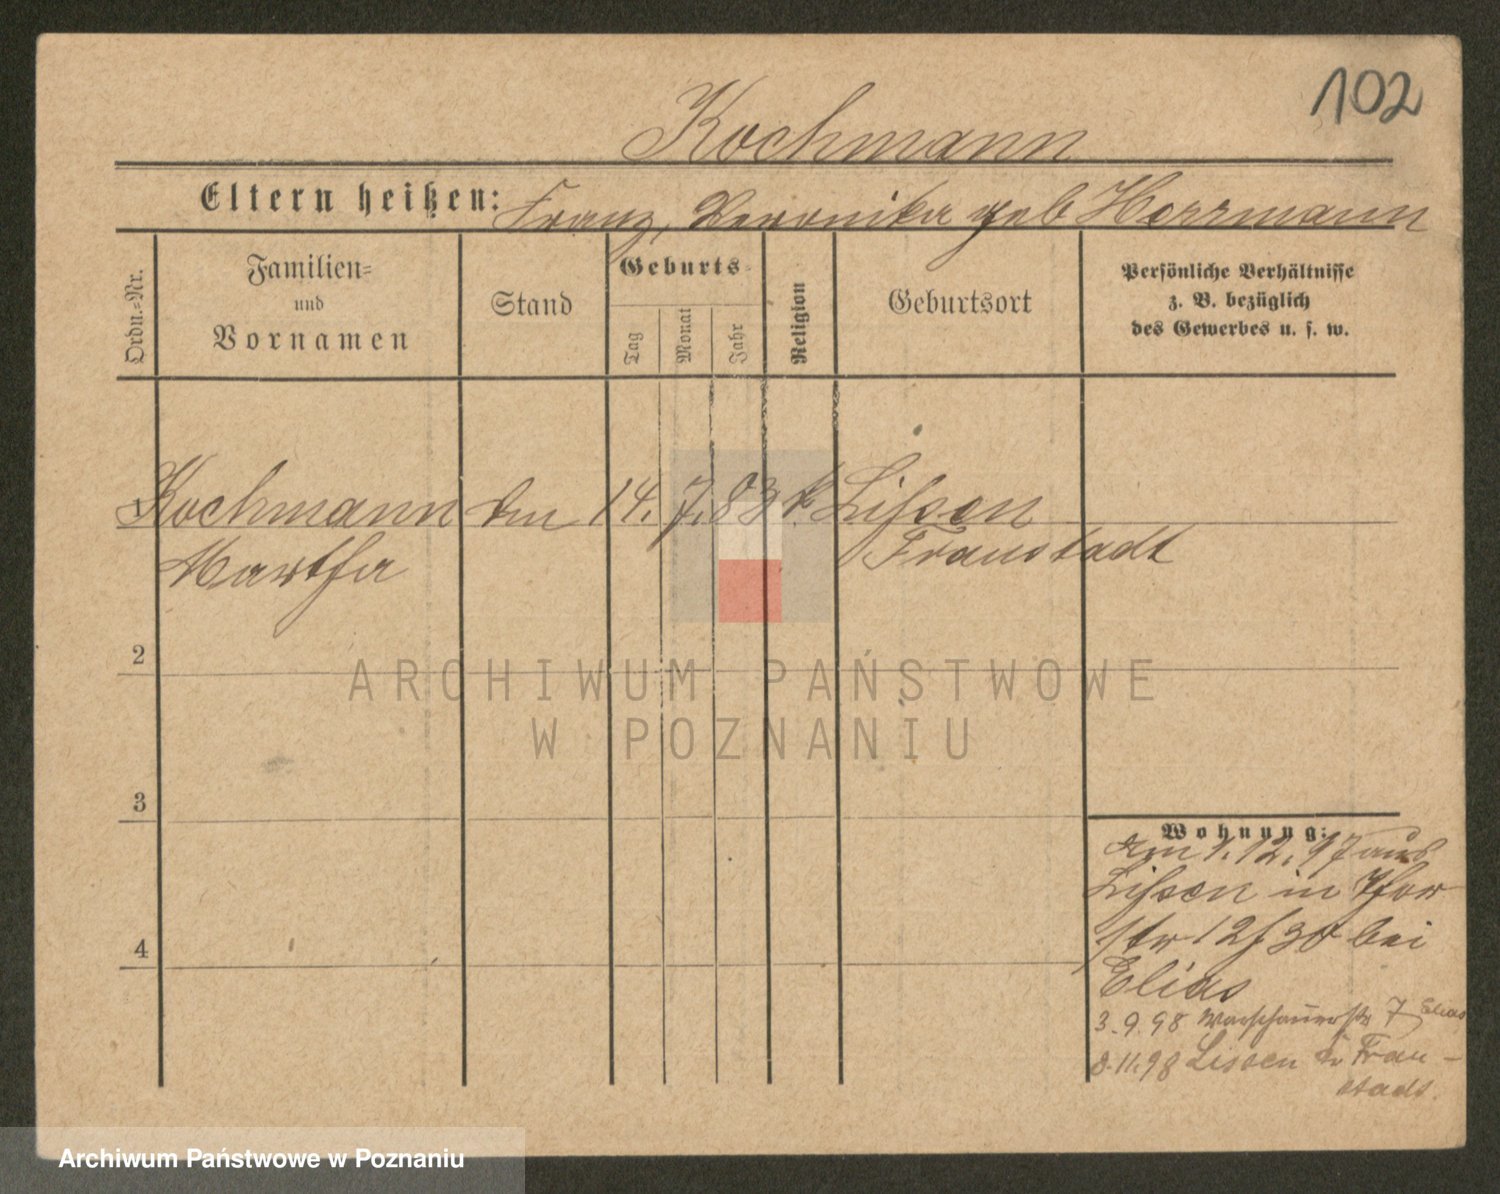 102
Kochmann
Eltern heißen: Franz, Veronika geb Horrmann
Ordn.-Nr.
Familien-
und
Vornamen
Stand
Geburts-
Tag
Monat
Jahr
Religion
Geburtsort
Persönliche Verhältnisse
z. B. bezüglich
des Gewerbes u. s. w.
1 Kochmann 14. 7. 83 k Lissen
Martha Fraustadt
2
ARCHIWUM PAŃSTWOWE
W POZNANIU
3
Wohnung:
am 1. 12. 97 aus
Lissen in
str 12/30 bei
Elias
3.9.98 Warschauerstr 7 Elias
8.11.98 Lissen Kr Frau-
stadt.
4
Archiwum Państwowe w Poznaniu